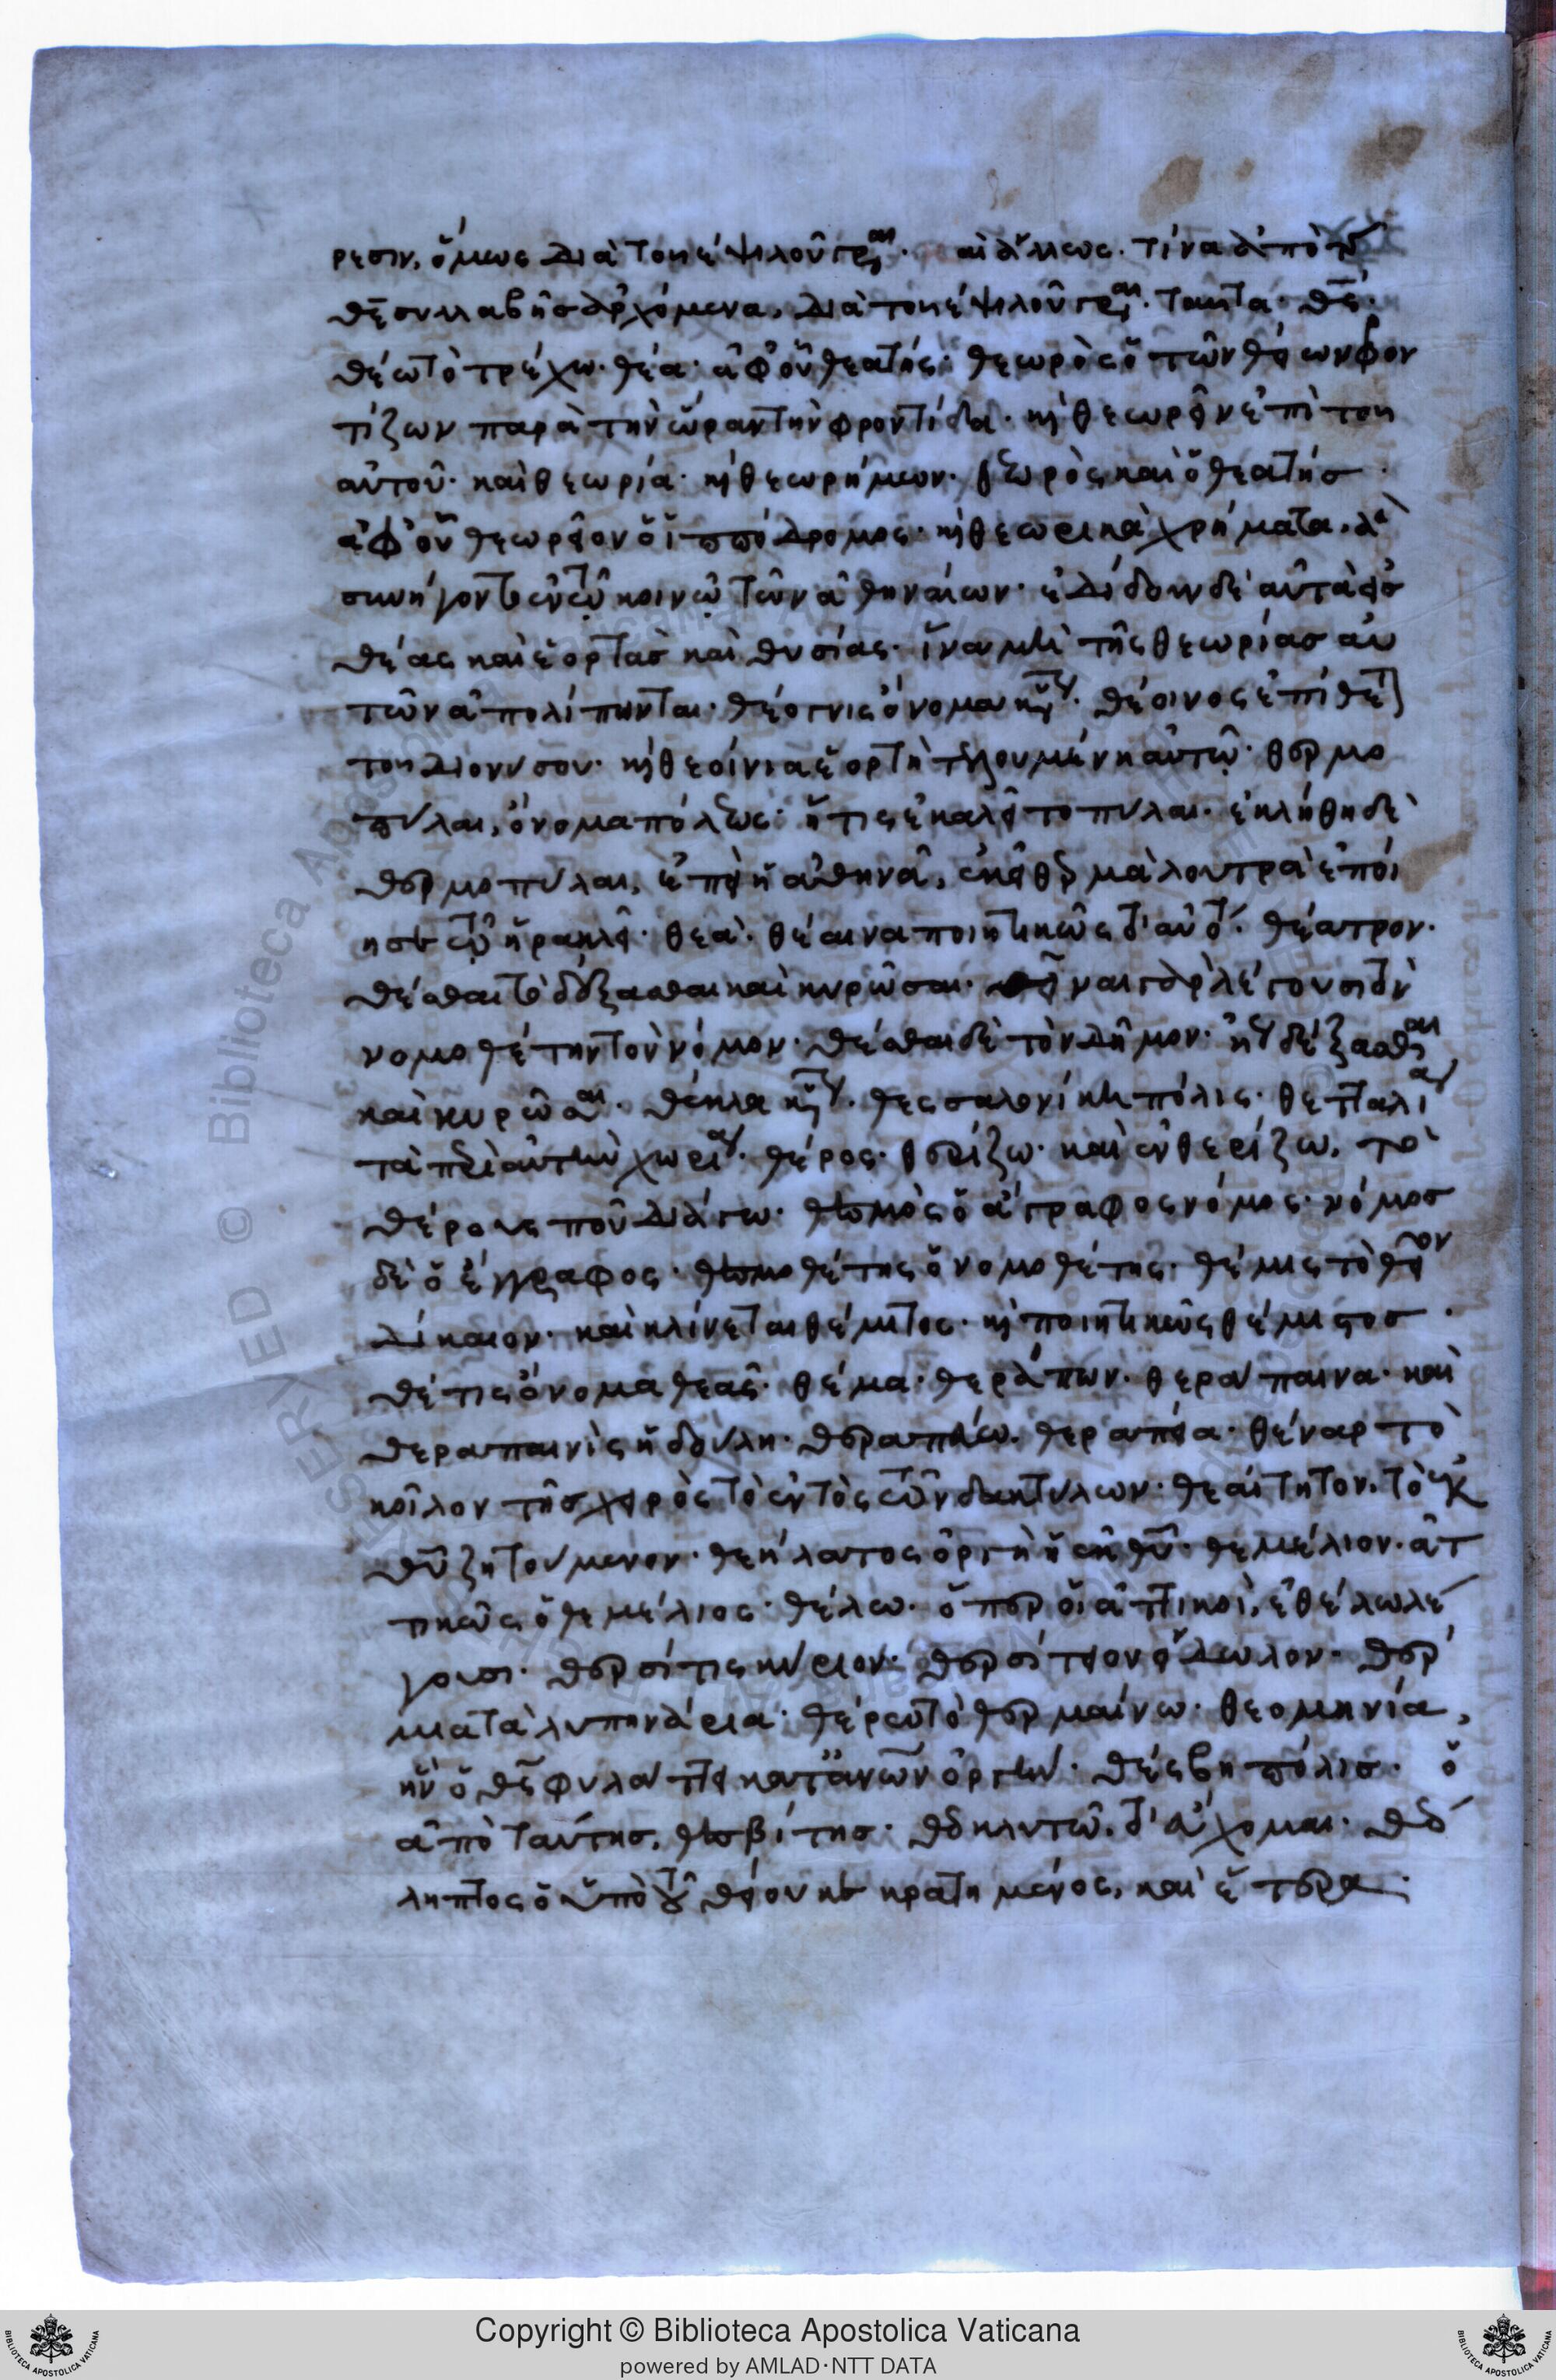 ρεσιν, ὅμως διὰ τοῦ ἐ ψιλοῦ γρ(άφετ)αι. αἱ ἄλλεως. τίνα ἀπὸ τ(ῆς)
θε συλλαβῆς ἀρχόμενα, διὰ τοῦ ἐ ψιλοῦ γρ(άφετ)αι. ταῦτα. θε.
θέω τὸ τρέχω. θέα. ἀφ' οὗ θεατής. θεωρὸς ὁ τῶν θείων φρον
τίζων παρὰ τὴν ὥραν τὴν φροντίδα. κ(αὶ) θεωρεῖν ἐπὶ του
αὐτοῦ. καὶ θεωρία. κ(αὶ) θεωρήμων. θεωρὸς καὶ ὁ θεατής.
ἀφ' οὗ θεωρεῖον ὁ ἱππόδρομος. κ(αὶ) θεωρικὰ χρήματα, ἃ
συνήγοντο ἐν τῷ κοινῷ τῶν ἀθηναίων. ἐδίδουν δὲ αὐτὰ εἰς
θέας καὶ ἑορτὰς καὶ θυσίας. ἵνα μὴ τῆς θεωρίας αὐ
τῶν ἀπολίπωνται. θέογνις ὄνομα κύ(ριον). θέοινος ἐπίθετ(ον)
του διονύσου. κ(αὶ) θεοίνια ἑορτὴ τελουμένη αὐτῷ. θερμο
πύλαι, ὄνομα πόλεως. ἥτις ἐκαλεῖτο πύλαι. ἐκλήθη δὲ
θερμοπύλαι, ἐπεὶ ἡ ἀθηνᾶ, ἐκεῖ θερμὰ λουτρὰ ἐποί
ησε τῷ ἡρακλεῖ. θεά. θέαινα ποιητικῶς τ' αὐτό. θέατρον.
θέσθαι τὸ δέξασθαι καὶ κυρῶσαι. θεῖναι γὰρ λέγουσι τὸν
νομοθέτην τὸν νόμον. θέσθαι δὲ τὸν δῆμον. ἤγ(ουν) δέξασθαι
καὶ κυρῶσαι. θέκλα κύ(ριον). θεσσαλονίκη πόλις. θετταλί(αν)
τὰ περὶ αὐτὴν χωρία. θέρος. θερίζω. καὶ ἐνθερίζω, τὸ
θέρους που διάγω. θεσμὸς ὁ ἄγραφος νόμος. νόμος
δὲ ὁ ἔγγραφος. θεσμοθέτης ὁ νομοθέτης. θέμις τὸ θεῖον
δίκαιον. καὶ κλίνεται θέμιτος. κ(αὶ) ποιητικῶς θέμιστος.
θέτις ὄνομα θεᾶς. θέμα. θεράπων. θεράπαινα. καὶ
θεραπαινὶς ἡ δούλη. θεραπεύω. θεραπεία. θέναρ τὸ
κοῖλον τῆς χειρὸς τὸ ἐντὸς τῶν δακτύλων. θεαίτητον, τὸ ἐκ
θ(εο)ῦ ζητούμενον. θεήλατος ὀργὴ ἡ ἐκ θ(εο)ῦ. θεμέλιον. ἀτ
τικῶς ὁ θεμέλιος. θέλω. ὅπερ οἱ ἀττικοὶ, ἐθέλω λέ
γουσι. θερσίτης κύριον. θερσίτειον εἴδωλον. θέρ
ματα λυπηνάρια. θέρω τὸ θερμαίνω. θεομηνία,
ἣν ὁ θ(εὸ)ς φυλάττει κατ' ἀν(θρώπ)ων ὀργήν. θέσβη πόλις. ὁ
ἀπὸ ταύτης, θεσβίτης. θεοκλυτῶ, τ' εὔχομαι. θεό
ληπτος ὁ ὑπὸ τοῦ θείου κεκρατημένος, καὶ ἕτερα.